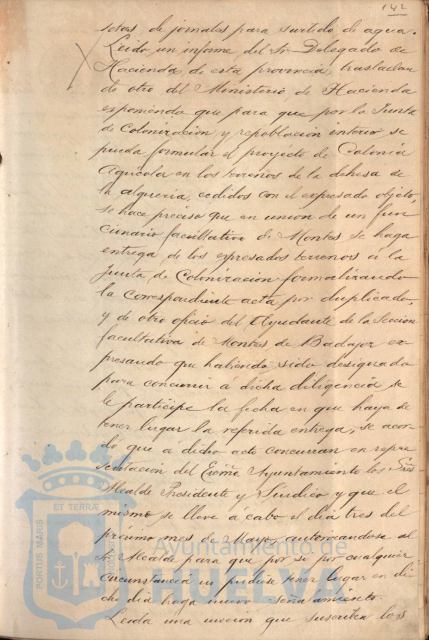 142
setas de jornales para surtido de agua.
Leido un informe del Sr. Delegado de
Hacienda de esta provincia, trasladan
do otro del Ministerio de Hacienda
exponiendo que para que por la Junta
de Colonización y repoblación interior se
pueda formular el proyecto de Colonia
Agricola en los terrenos de la dehesa de
la alqueria, cedidos con el expresado objeto,
se hace preciso que en union de un fun
cionario facultativo de Montes se haga
entrega de los expresados terrenos á la
Junta de Colonizacion formalizando
la correspondiente acta por duplicado,
y de otro oficio del Ayudante de la Sección
facultativa de Montes de Badajoz ex
presando que habiendo sido designado
para concurrir a dicha diligencia se
le participe la fecha en que haya de
tener lugar la referida entrega, se acor
do que a dicho acto concurran en repre
sentacion del Excmo Ayuntamiento los Sres
Alcalde Presidente y Sindico y que el
mismo se lleve á cabo el dia tres del
proximo mes de Mayo, autorizandose al
Sr Alcalde para que por si por cualquier
circunstancia no pudiese tener lugar en di
cho dia haga nuevo señalamiento.
Leida una mocion que suscribe los
PORTUS MARIS ET TERRAE
Ayuntamiento de
HUELVA